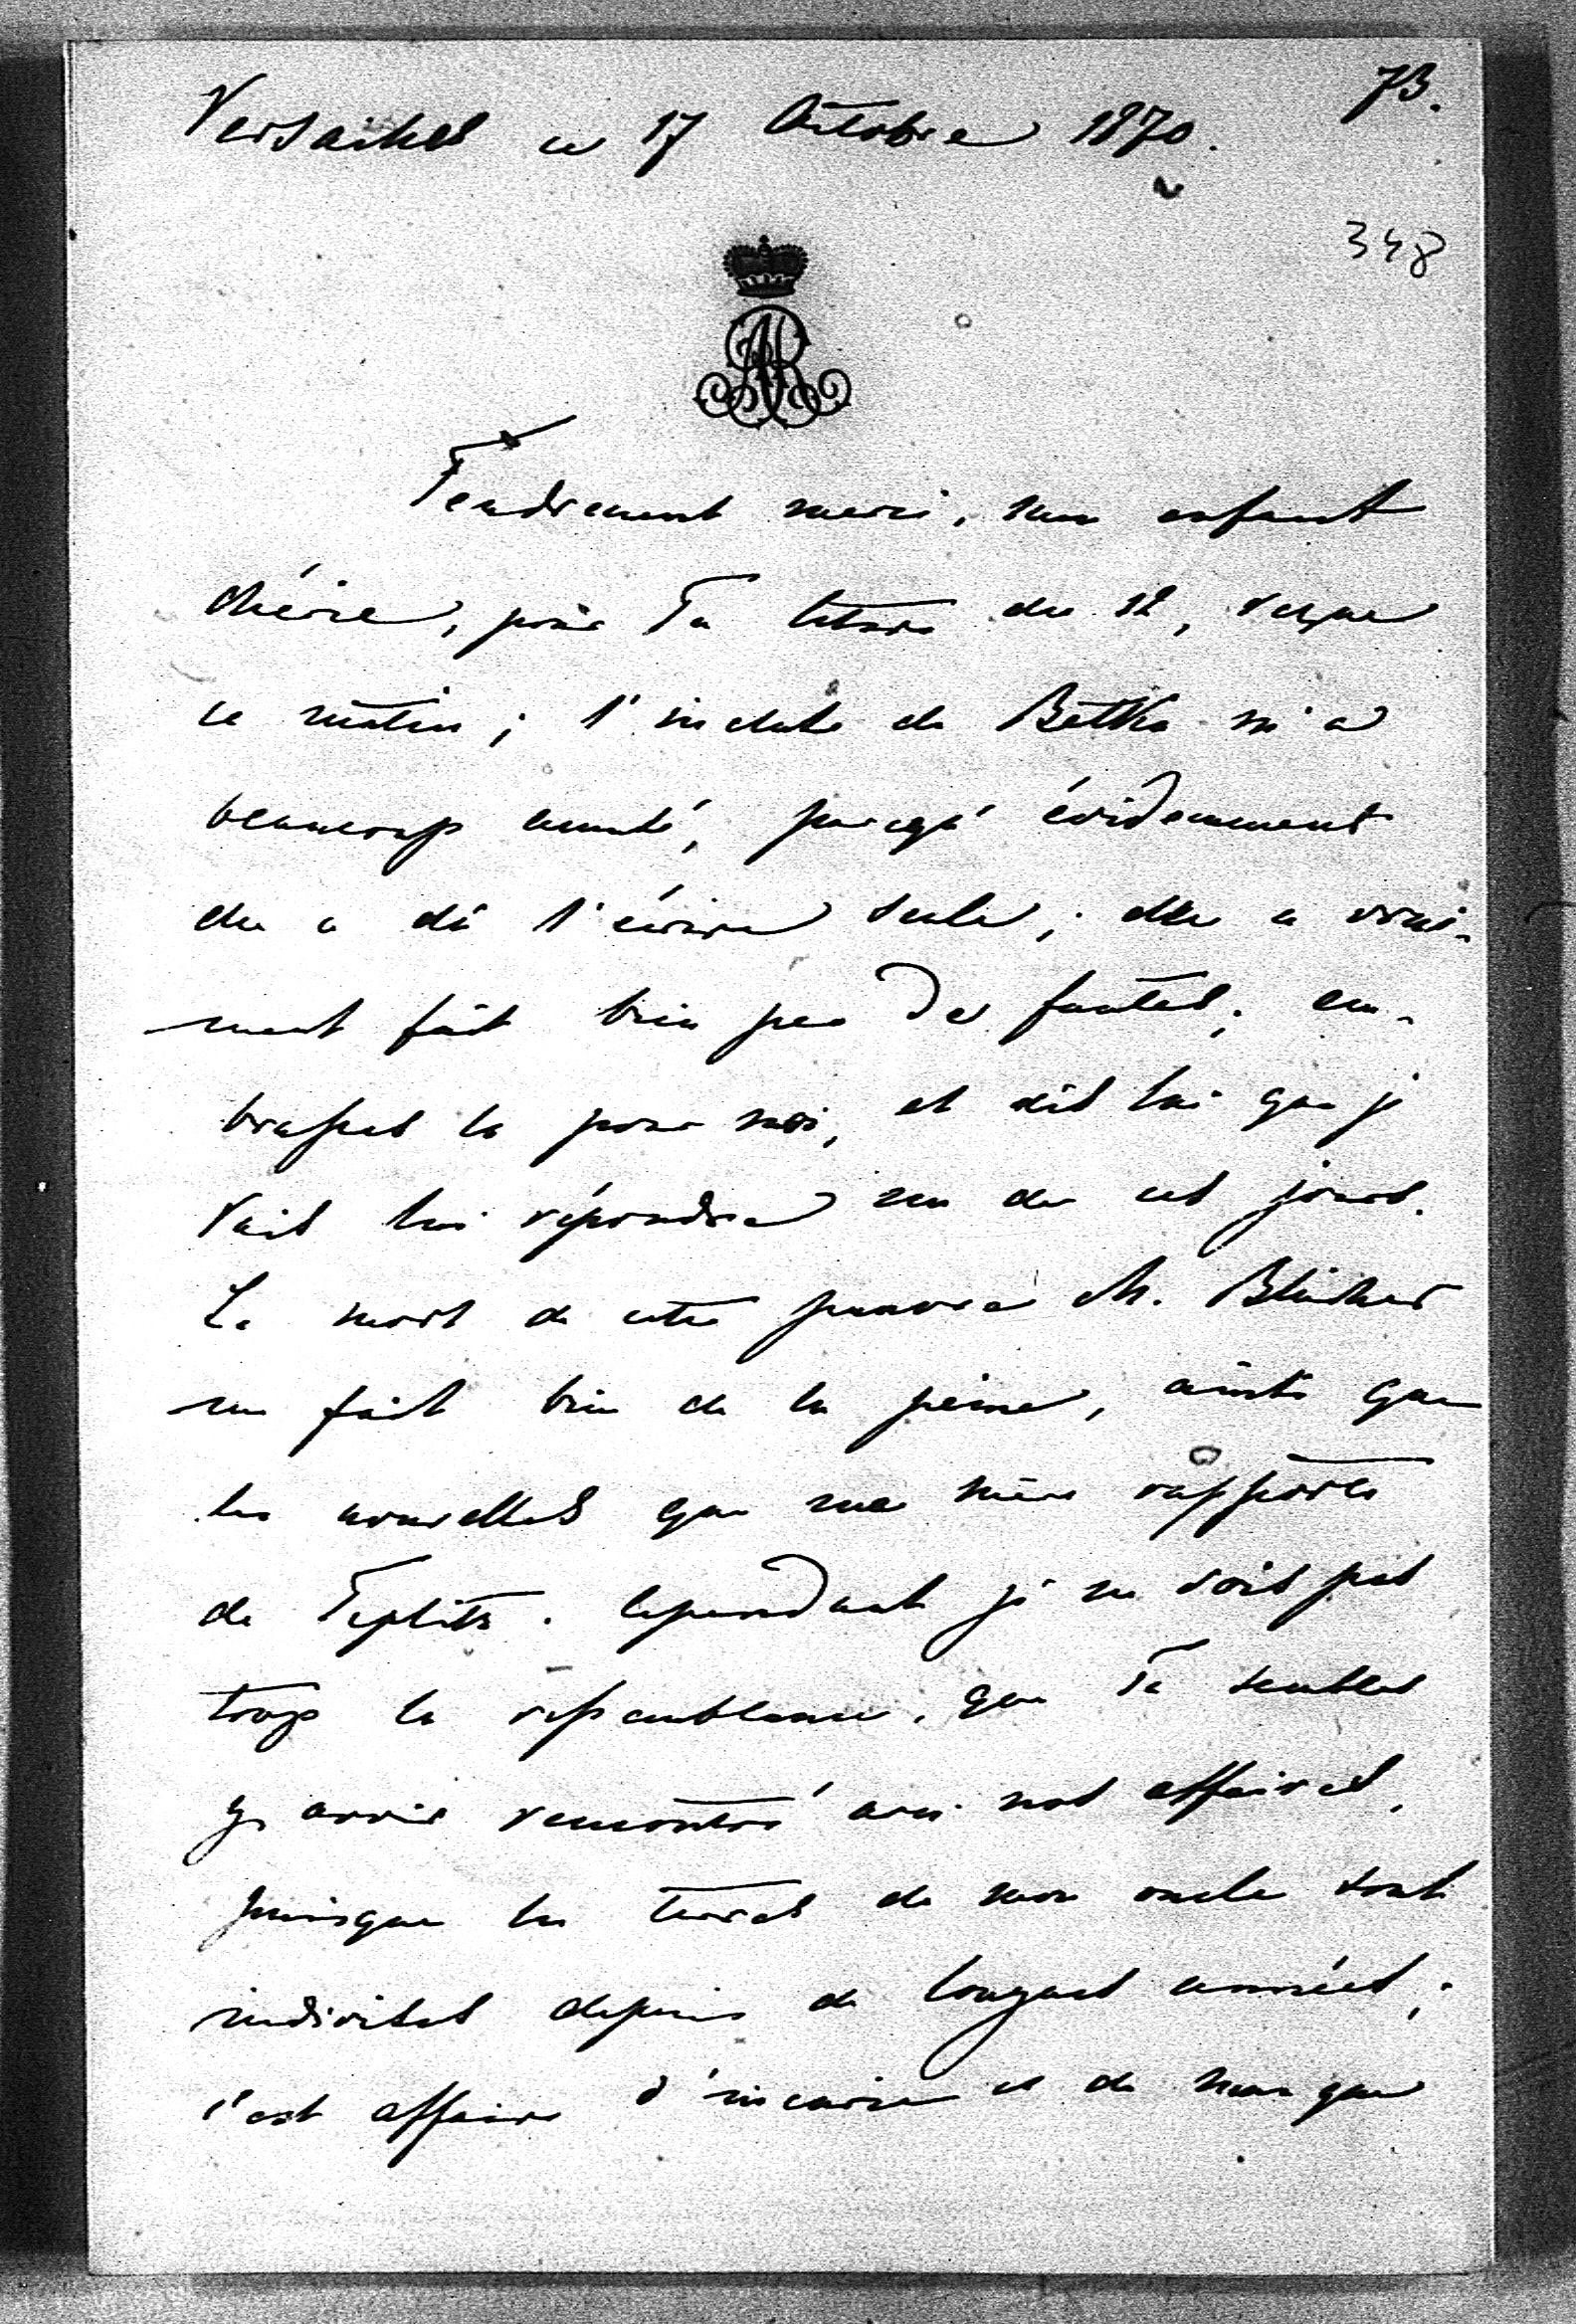 73.
Versailles ce 17 Octobre 1870.
348
AR
Tendrement merci, mon enfant
chérie, pour Ta lettre du 12, reçue
ce matin; l'incluse de Betka m'a
beaucoup amusé, parcqu' évidemment
elle a dû l'écrire seule; elle a vrai-
ment fait bien peu de fautes; em-
brasses la pour moi, et dis lui que je
vais lui répondre un de ces jours.
La mort de cette pauvre M. Blücher
me fait bien de la peine, ainsi que
les nouvelles que ma mère rapporte
de Teplitz. Cependant je ne vois pas
trop la ressemblance, que Tu sembles
y avoir rencontré avec nos affaires,
puisque les terres de mon oncle sont
indivises depuis de longues années;
c'est affaire d'incurie et de manque